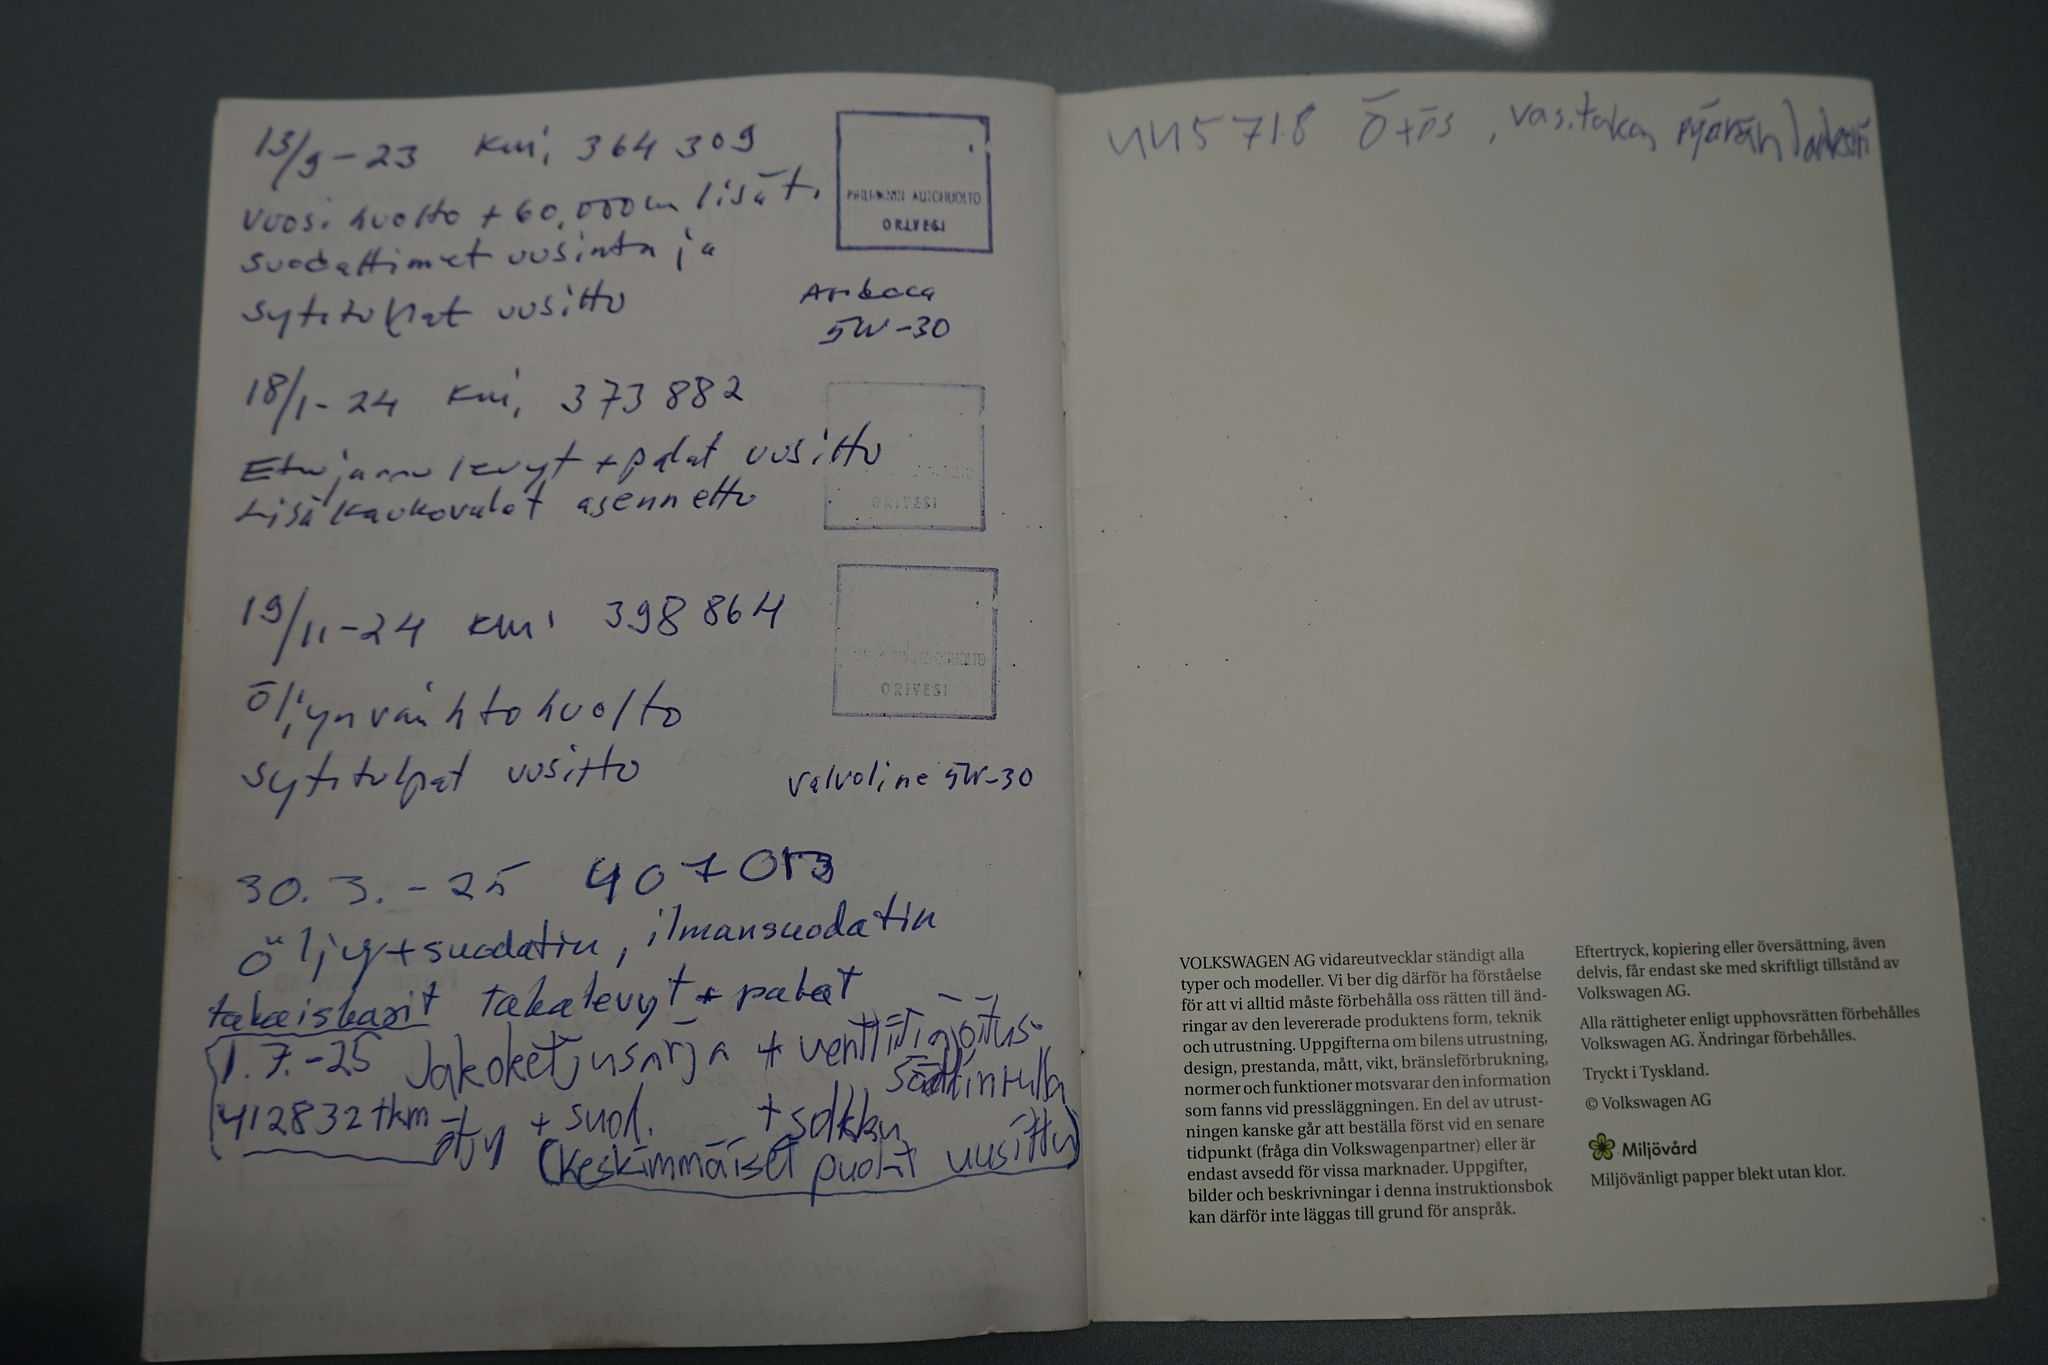 13/9-23 km. 364 309
vuosihuolto + 60.000 km lisät.
suodattimet uusinta ja
sytytulpat uusittu
5W-30
ORIVESI
18/1-24 km. 373 882
Etujarrulevyt + palat uusittu
Lisäkaukovalot asennettu
ORIVESI
19/11-24 km. 398 864
Öljynvaihtohuolto
sytytulpat uusittu
Valvoline 5W-30
ORIVESI
30.3.-25 407
öljy+suodatin, ilmansuodatin
takaiskarit takalevyt + palat
1.7.-25 Jakoketjusarja + venttiilinajoitus-
412832 tkm öljy + suod. + sokka
(Keskimmäiset puolat uusittu)
445718 Ö+ÖS, vas.takan pyörän laakeri
VOLKSWAGEN AG vidareutvecklar ständigt alla
typer och modeller. Vi ber dig därför ha förståelse
för att vi alltid måste förbehålla oss rätten till änd-
ringar av den levererade produktens form, teknik
och utrustning. Uppgifterna om bilens utrustning,
design, prestanda, mått, vikt, bränsleförbrukning,
normer och funktioner motsvarar den information
som fanns vid pressläggningen. En del av utrust-
ningen kanske går att beställa först vid en senare
tidpunkt (fråga din Volkswagenpartner) eller är
endast avsedd för vissa marknader. Uppgifter,
bilder och beskrivningar i denna instruktionsbok
kan därför inte läggas till grund för anspråk.
Eftertryck, kopiering eller översättning, även
delvis, får endast ske med skriftligt tillstånd av
Volkswagen AG.
Alla rättigheter enligt upphovsrätten förbehålles
Volkswagen AG. Ändringar förbehålles.
Tryckt i Tyskland.
© Volkswagen AG
Miljövård
Miljövänligt papper blekt utan klor.